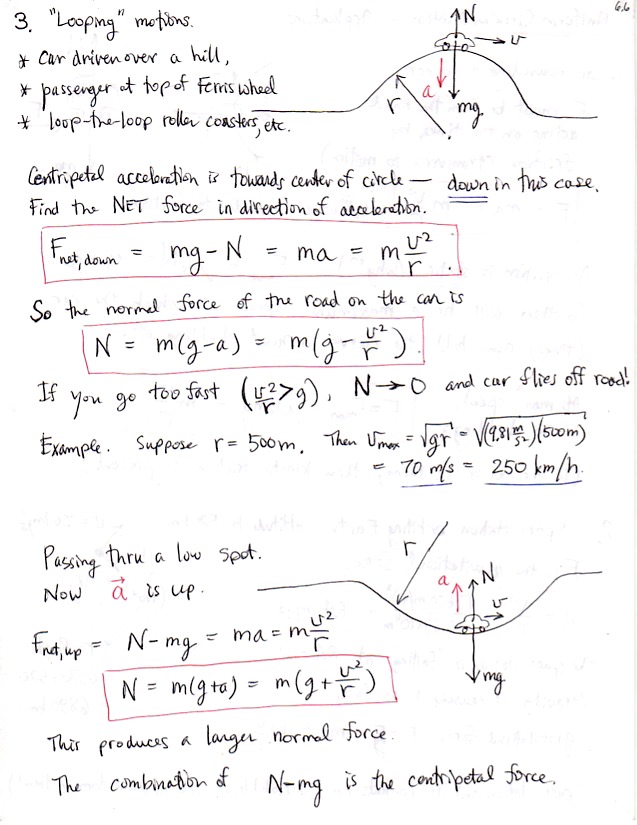 6.6
3. "Looping" motions.
* Car driven over a hill,
* passenger at top of Ferris wheel
* loop-the-loop roller coasters, etc.
N
v
a
mg
r
Centripetal acceleration is towards center of circle — down in this case.
Find the NET force in direction of acceleration.
F_net,down = mg - N = ma = m v²/r.
So the normal force of the road on the car is
N = m(g-a) = m(g - v²/r).
If you go too fast (v²/r > g), N → 0 and car flies off road!
Example. Suppose r = 500m. Then v_max = √gr = √(9.81 m/s²)(500m)
= 70 m/s = 250 km/h.
Passing thru a low spot.
Now a⃗ is up.
r
a
N
v
mg
F_net,up = N - mg = ma = m v²/r
N = m(g+a) = m(g + v²/r)
This produces a larger normal force.
The combination of N-mg is the centripetal force.